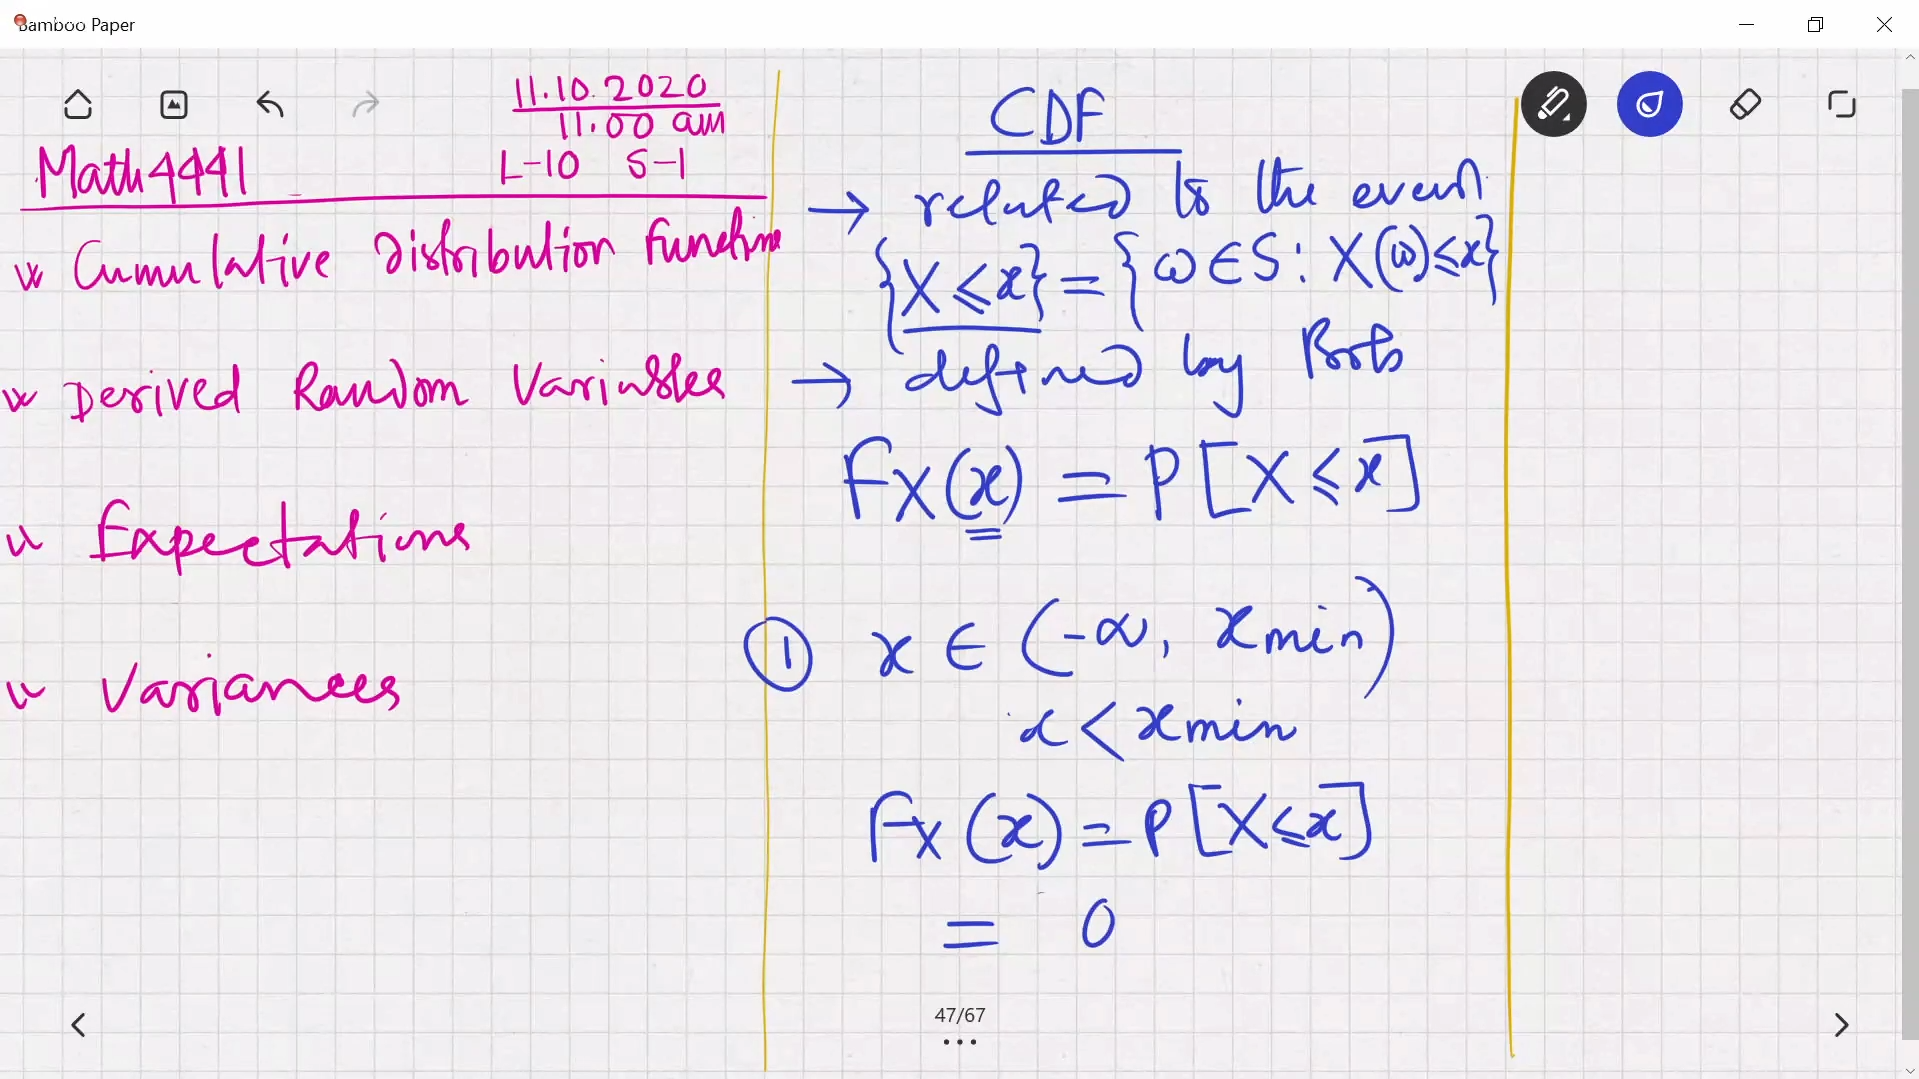 Bamboo Paper
11.10.2020
11.00 am
Math 4441 L-10 S-1
Cumulative Distribution Functions
Derived Random Variables
Expectations
Variances
CDF
→ related to the event
{X ≤ x} = {ω ∈ S : X(ω) ≤ x}
→ defined by Prob
FX(x) = P[X ≤ x]
① x ∈ (-∞, xmin)
x < xmin
FX(x) = P[X ≤ x]
= 0
47/67